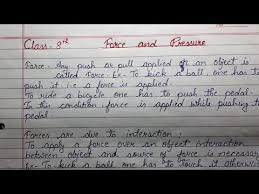 Class-8th Force and Pressure
Force- Any push or pull applied on an object is
called Force. Ex- To kick a ball, one has to
push it i.e a force is applied.
To ride a bicycle one has to push the pedal.
In this condition, force is applied while pushing the
pedal.
Forces are due to interaction:
To apply a force over an object interaction
between object and source of force is necessary
Ex- To kick a ball one has to touch it otherwise